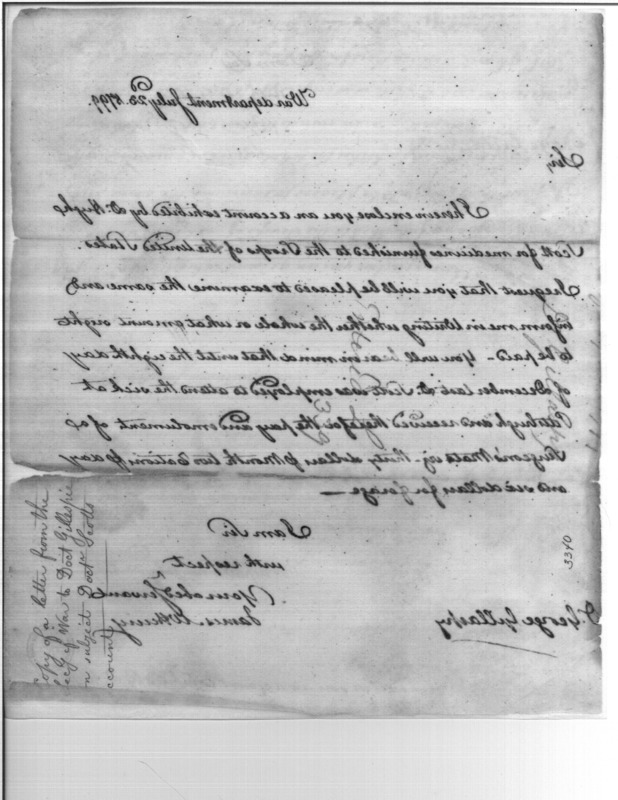 War department July 23.d 1799.
Sir,
I herein enclose you an account exhibited by Dr. Hugh
Scott for medicines furnished to the Troops of the United States.
I request that you will be pleased to examine the same and
inform me in Writing whether the whole or what amount ought
to be paid - You will bear in mind that until the eighth day
of December last Dr. Scott was employed to attend the sick at
Pittsburgh and received therefor the pay and emolument of a
Surgeon's Mate viz. thirty dollars p Month two Rations p day
and six dollars for forage —
I am Sir
with respect
Your obed.t Servant
James McHenry
Dr. George Gillaspy
Copy of a letter from the
Secy of War to Doct Gillespie
on subject Doctr Scotts
account
3340